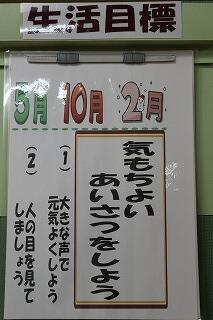 生活目標
5月 10月 2月
気もちよい
あいさつをしよう
(1) 大きな声で
元気よくしよう
(2) 人の目を見て
しましょう